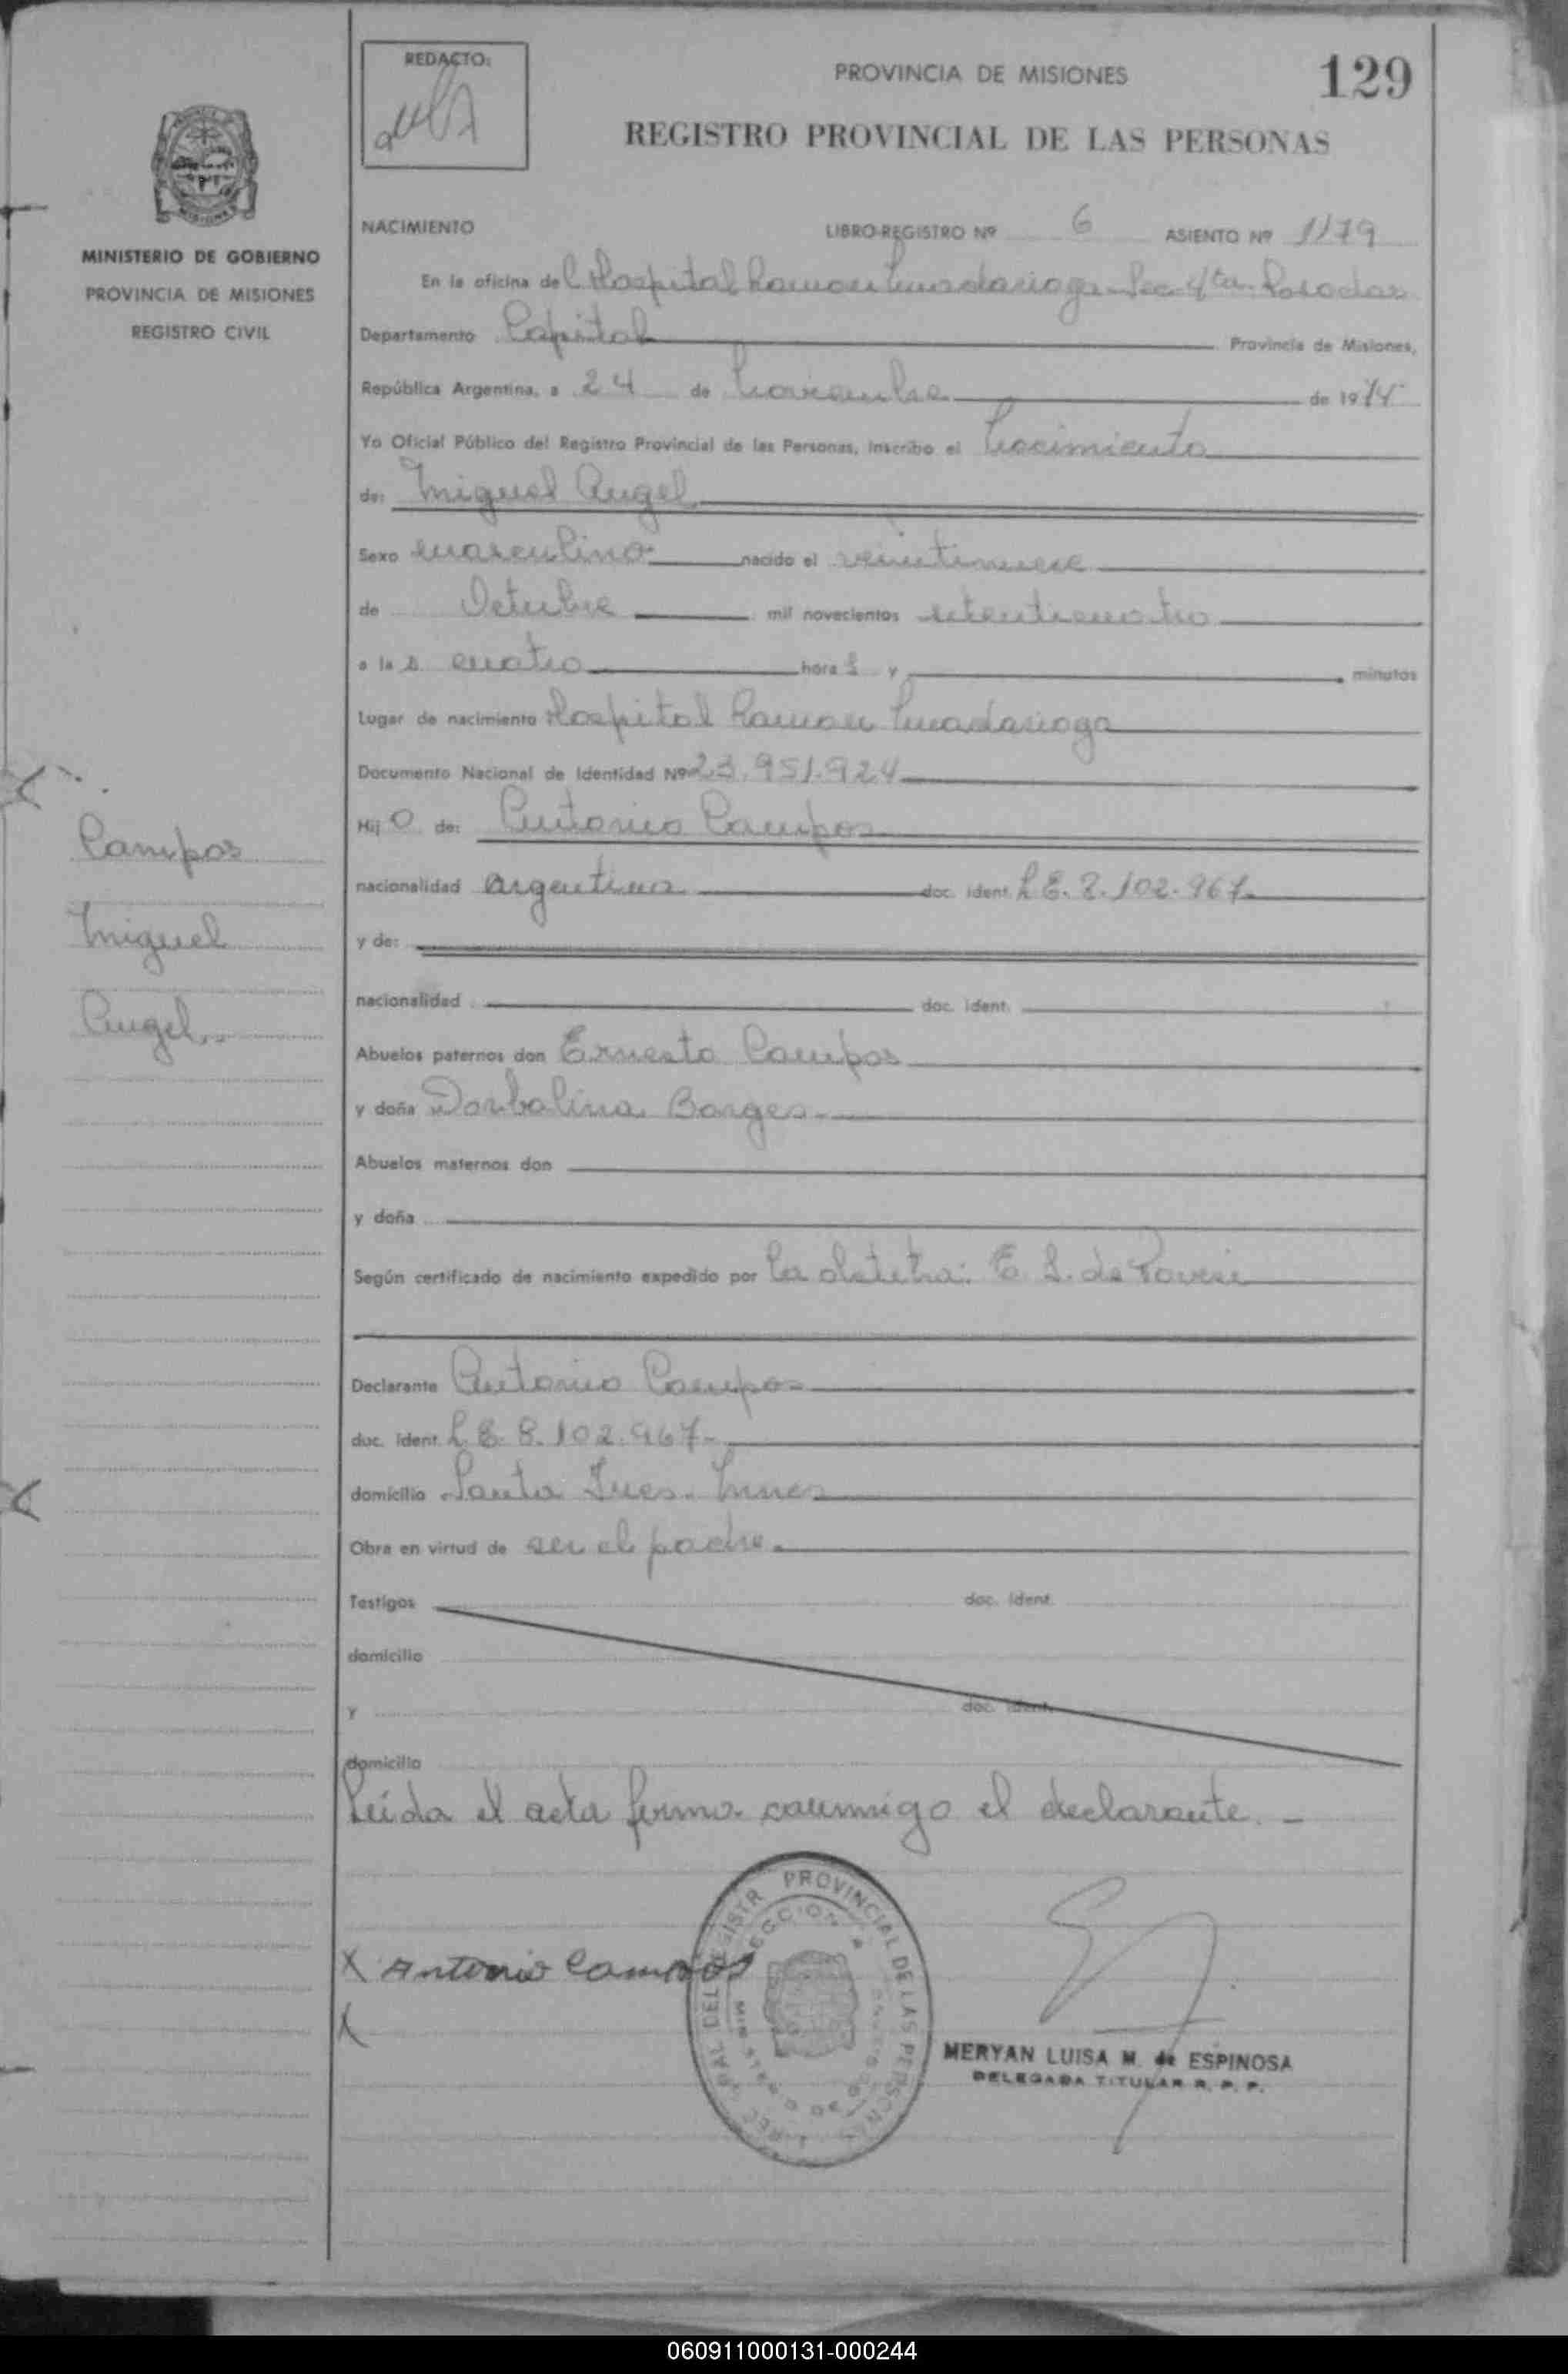 REDACTO:
PROVINCIA DE MISIONES
129
REGISTRO PROVINCIAL DE LAS PERSONAS
MINISTERIO DE GOBIERNO
PROVINCIA DE MISIONES
REGISTRO CIVIL
NACIMIENTO LIBRO-REGISTRO Nº 6 ASIENTO Nº 1179
En la oficina del Hospital Ramon Madariaga - Sec 4ta Posadas
Departamento Capital Provincia de Misiones,
República Argentina, a 24 de Noviembre de 1974
Yo Oficial Público del Registro Provincial de las Personas, inscribo el Nacimiento
de: Miguel Angel
Sexo masculino nacido el veintinueve
de Octubre mil novecientos setenticuatro
a las cuatro horas y minutos
Lugar de nacimiento Hospital Ramon Madariaga
Documento Nacional de Identidad Nº 23.951.924
Hijo de: Antonio Campos
nacionalidad argentina doc. ident. L E. 8.102.967.
y de:
nacionalidad doc. ident.
Abuelos paternos don Ernesto Campos
y doña Dorbalina Borges.
Abuelos maternos don
y doña
Según certificado de nacimiento expedido por La obstetra: E. L. de
Declarante Antonio Campos
doc. ident. L. E. 8.102.967.
domicilio Santa Ines.
Obra en virtud de ser el padre.
Testigos doc. ident.
domicilio
y doc. ident.
domicilio
Leída el acta firma conmigo el declarante. -
Campos
Miguel
Angel.
X Antonio Campos
X
PROVINCIAL DE LAS PERSONAS
SECCION
MERYAN LUISA M. de ESPINOSA
DELEGADA TITULAR R. P. P.
060911000131-000244